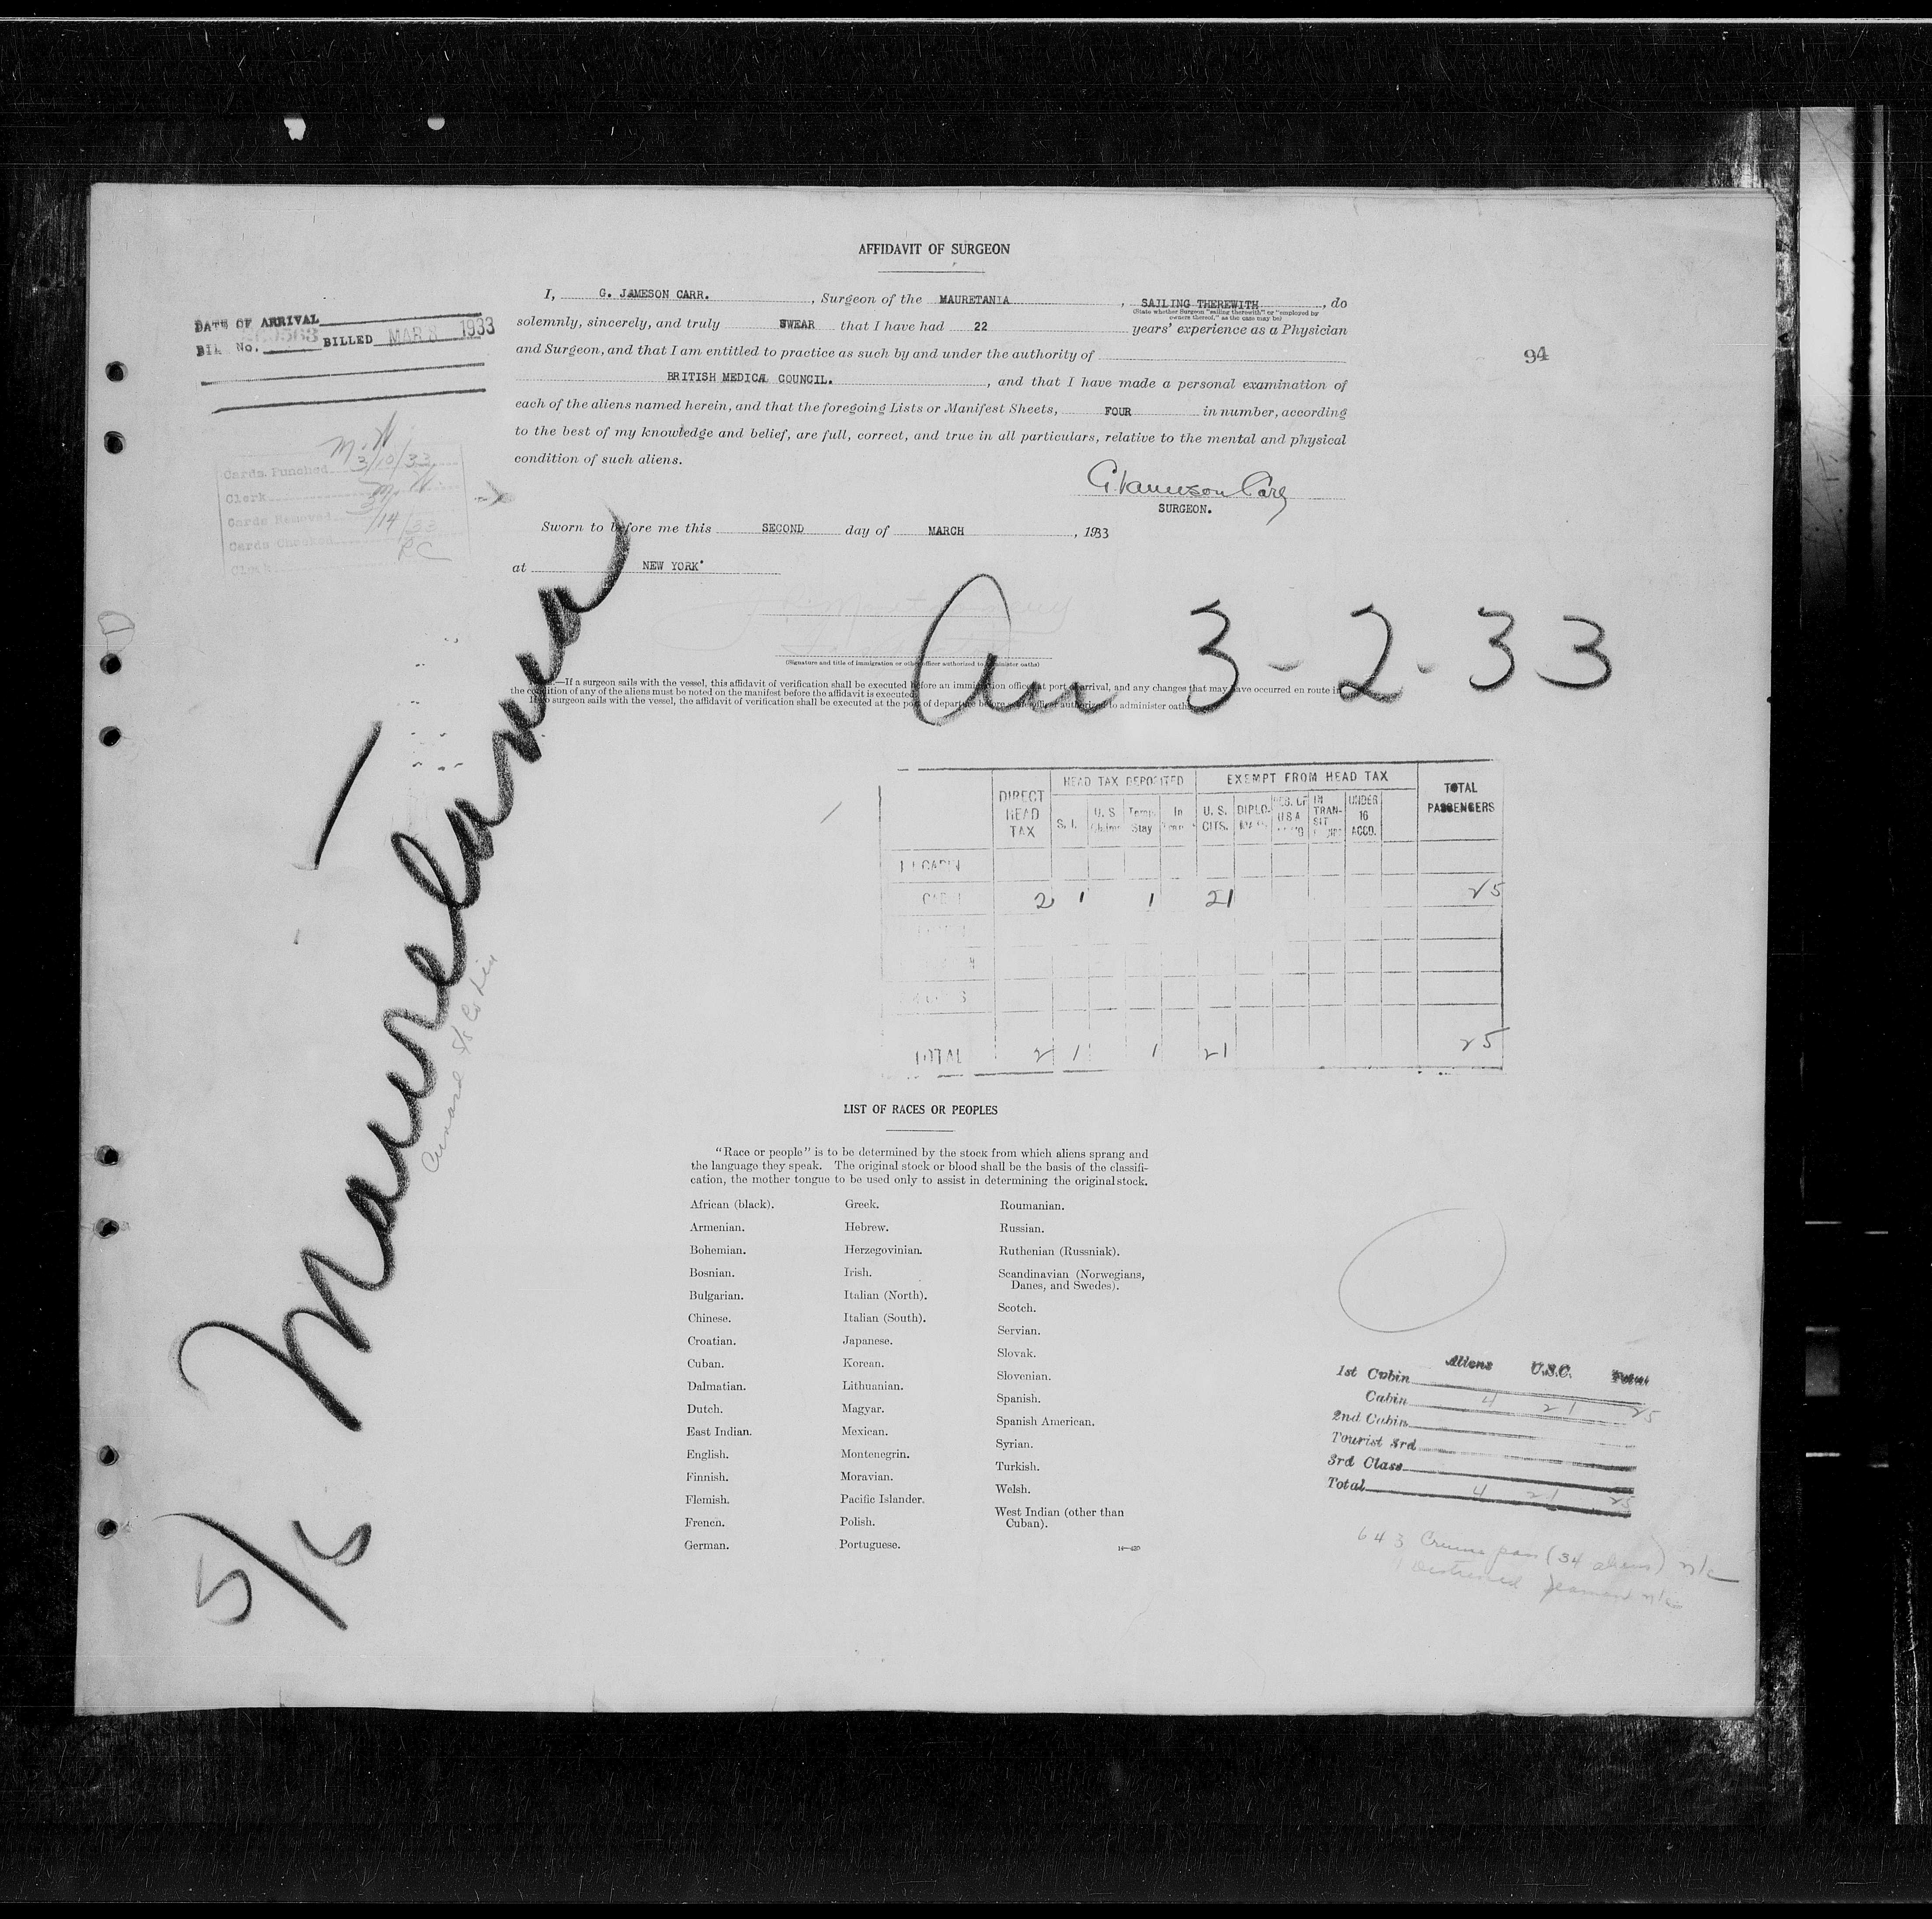 AFFIDAVIT OF SURGEON
I, G. JAMESON CARR. , Surgeon of the MAURETANIA , SAILING THEREWITH , do
(State whether Surgeon "sailing therewith" or "employed by
owners thereof," as the case may be)
solemnly, sincerely, and truly SWEAR that I have had 22 years' experience as a Physician
and Surgeon, and that I am entitled to practice as such by and under the authority of
BRITISH MEDICAL COUNCIL. , and that I have made a personal examination of
each of the aliens named herein, and that the foregoing Lists or Manifest Sheets, FOUR in number, according
to the best of my knowledge and belief, are full, correct, and true in all particulars, relative to the mental and physical
condition of such aliens.
G. Jameson Carr
SURGEON.
Sworn to before me this SECOND day of MARCH , 1933
at NEW YORK
(Signature and title of immigration or other officer authorized to administer oaths)
—If a surgeon sails with the vessel, this affidavit of verification shall be executed before an immigration officer at port of arrival, and any changes that may have occurred en route in
the condition of any of the aliens must be noted on the manifest before the affidavit is executed.
If no surgeon sails with the vessel, the affidavit of verification shall be executed at the port of departure before some officer authorized to administer oaths.
DATE OF ARRIVAL
BILL No. BILLED MAR 8 1933
94
Cards Punched 3/10/33
Clerk
Cards Removed
Cards Checked 3/14/33
Clerk
Arr 3-2-33
Mauretania
Cunard S/S Co Lin
5/S
HEAD TAX DEPOSITED EXEMPT FROM HEAD TAX
DIRECT HEAD TAX S. I. U. S. Claims Temp. Stay In Trans U. S. CITS. DIPLO- RES. OF USA IN TRAN- SIT UNDER 16 ACCO. TOTAL PASSENGERS
1st CABIN
CABIN 2 1 1 21 25
TOTAL 2 1 1 21 25
LIST OF RACES OR PEOPLES
"Race or people" is to be determined by the stock from which aliens sprang and
the language they speak. The original stock or blood shall be the basis of the classifi-
cation, the mother tongue to be used only to assist in determining the original stock.
African (black).
Armenian.
Bohemian.
Bosnian.
Bulgarian.
Chinese.
Croatian.
Cuban.
Dalmatian.
Dutch.
East Indian.
English.
Finnish.
Flemish.
French.
German.
Greek.
Hebrew.
Herzegovinian.
Irish.
Italian (North).
Italian (South).
Japanese.
Korean.
Lithuanian.
Magyar.
Mexican.
Montenegrin.
Moravian.
Pacific Islander.
Polish.
Portuguese.
Roumanian.
Russian.
Ruthenian (Russniak).
Scandinavian (Norwegians,
Danes, and Swedes).
Scotch.
Servian.
Slovak.
Slovenian.
Spanish.
Spanish American.
Syrian.
Turkish.
Welsh.
West Indian (other than
Cuban).
Aliens U.S.C. Total
1st Cabin
Cabin 4 21 25
2nd Cabin
Tourist 3rd
3rd Class
Total 4 21 25
643 Cruise pass (34 aliens) n/c
1 Destitute seaman n/c